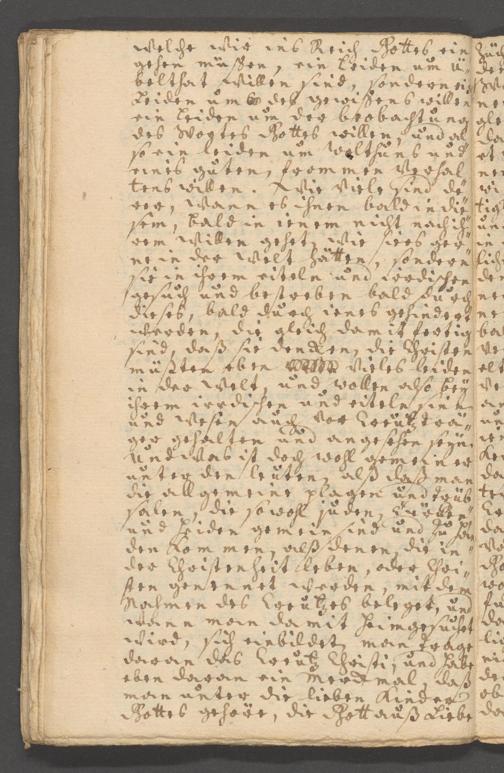 welche wir ins Reich Gottes ein
gehen müßen, ein Leiden um ü-
belthat willen sind, sondern ein
Leiden um des gewißens willen
ein Leiden um der beobachtung
des Wortes Gottes willen, und al
so ein leiden um wolthuns und
eines guten, frommen Verhal
tens willen. Wie viele sind de
rer, wann es ihnen bald in die
sem, bald in jenem nicht nach ih
rem willen gehet, wie sie es ger
ne in der Welt hätten, sondern
sie in ihrem eiteln und irrdischen
gesuch und bestreben bald durch
dieses, bald durch jenes gehindert
werden, die gleich damit fertig
sind, daß sie dencken, die Christen
müßten eben vieles leiden
in der Welt, und wollen also bey
ihrem irrdischen und eiteln sinn
und wesen auch vor Creutztra-
ger gehalten und angesehen seyn.
Und was ist doch wohl gemeiner
unter den leuten, alß daß man
die allgemeine plagen und trüb
salen, die sowohl Juden, Türcken
und Heiden gemein sind und zu
den kommen, alß denen, die in
der Christenheit leben, oder Chri-
sten genennet werden, mit dem
Nahmen des Creutzes beleget, und
wann man damit heimgesuchet
wird, sich einbildet, man trage
daran das Creutz Christi, und habe
eben daran ein Merckmal, daß
man unter die lieben Kinder
Gottes gehöre, die Gott auß Liebe